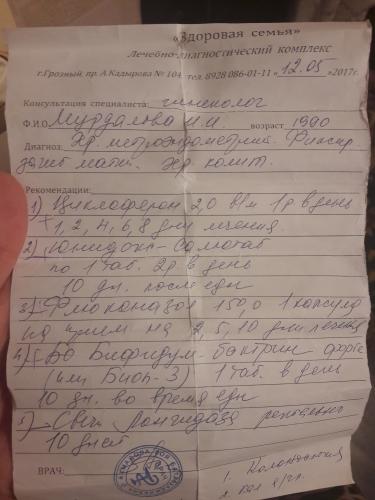 «Здоровая семья»
Лечебно-диагностический комплекс
г.Грозный, пр. А.Кадырова № 104, тел. 8928 086-01-11 «12.05»2017г.
Консультация специалиста: гинеколог
Ф.И.О. возраст 1990
Диагноз Хр. метроэндометрит. Фиксир.
загиб матк. хр. колит.
Рекомендации:
1) Циклоферон 2,0 в/м 1 р в день
1, 2, 4, 6, 8 дни лечения.
2) Юнидокс-Солютаб
по 1 таб. 2р в день
10 дн. после еды
3) Флюконазол 150,0 1 капсула
на прием на 2, 5, 10 дни лечения
4) Бифидум-бактрин форте
(или Бион-3) 1 таб. в день
10 дн. во время еды
5) Свечи Лонгидаза ректально
10 дней
ВРАЧ:
1.
2.